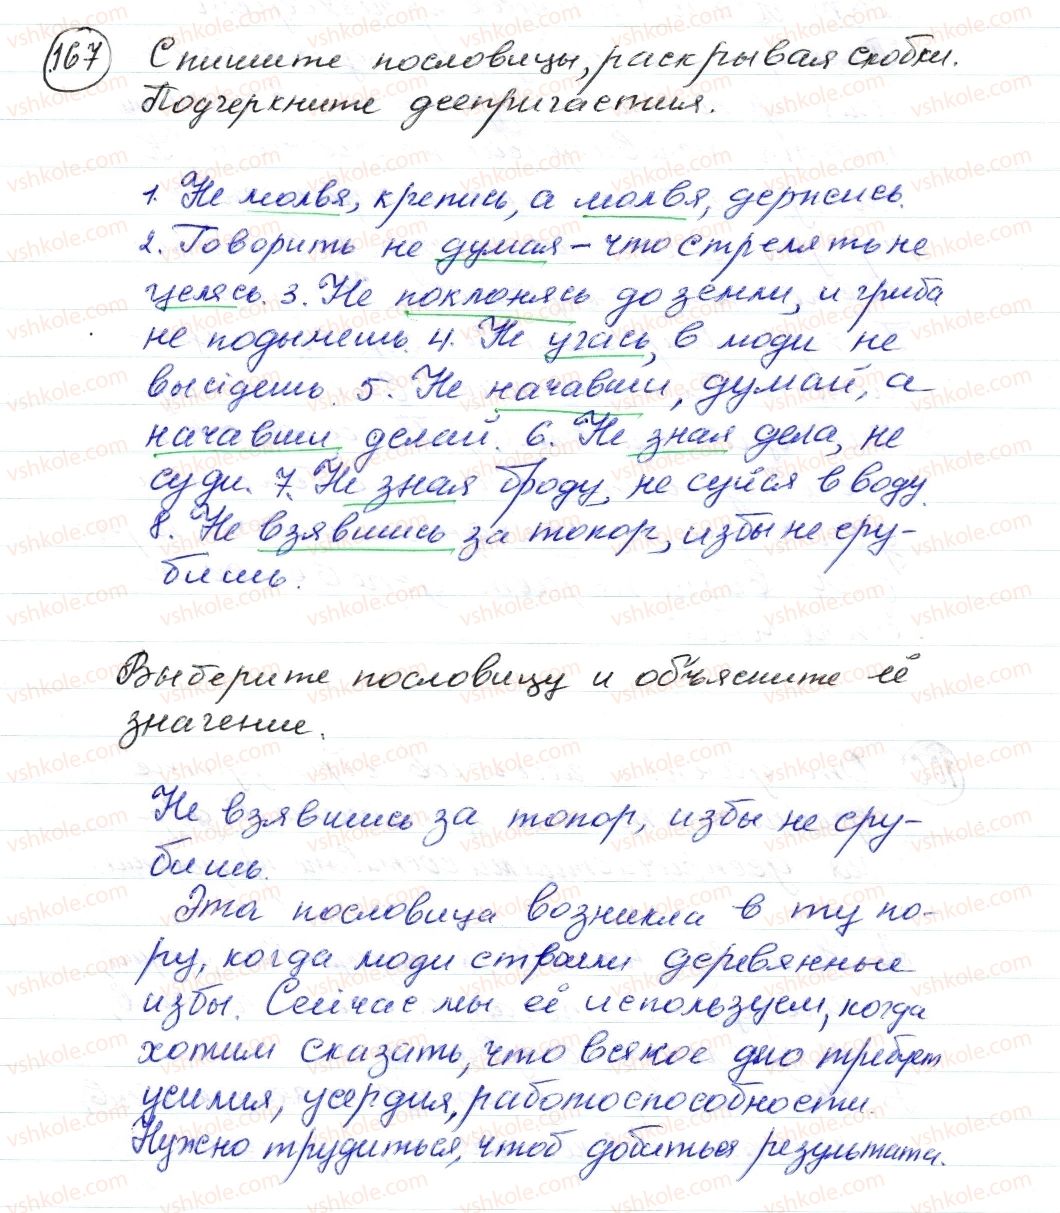 167 Спишите пословицы, раскрывая скобки.
Подчеркните деепричастия.
1. Не молвя, крепись, а молвя, держись.
2. Говорить не думая – что стрелять не
целясь. 3. Не поклонясь до земли, и гриба
не подымешь. 4. Не учась, в люди не
выйдешь. 5. Не начавши, думай, а
начавши, делай. 6. Не зная дела, не
суди. 7. Не зная броду, не суйся в воду.
8. Не взявшись за топор, избы не сру-
бишь.
Выберите пословицу и объясните её
значение.
Не взявшись за топор, избы не сру-
бишь.
Эта пословица возникла в ту по-
ру, когда люди строили деревянные
избы. Сейчас мы её используем, когда
хотим сказать, что всякое дело требует
усилия, усердия, работоспособности.
Нужно трудиться, чтоб добиться результата.